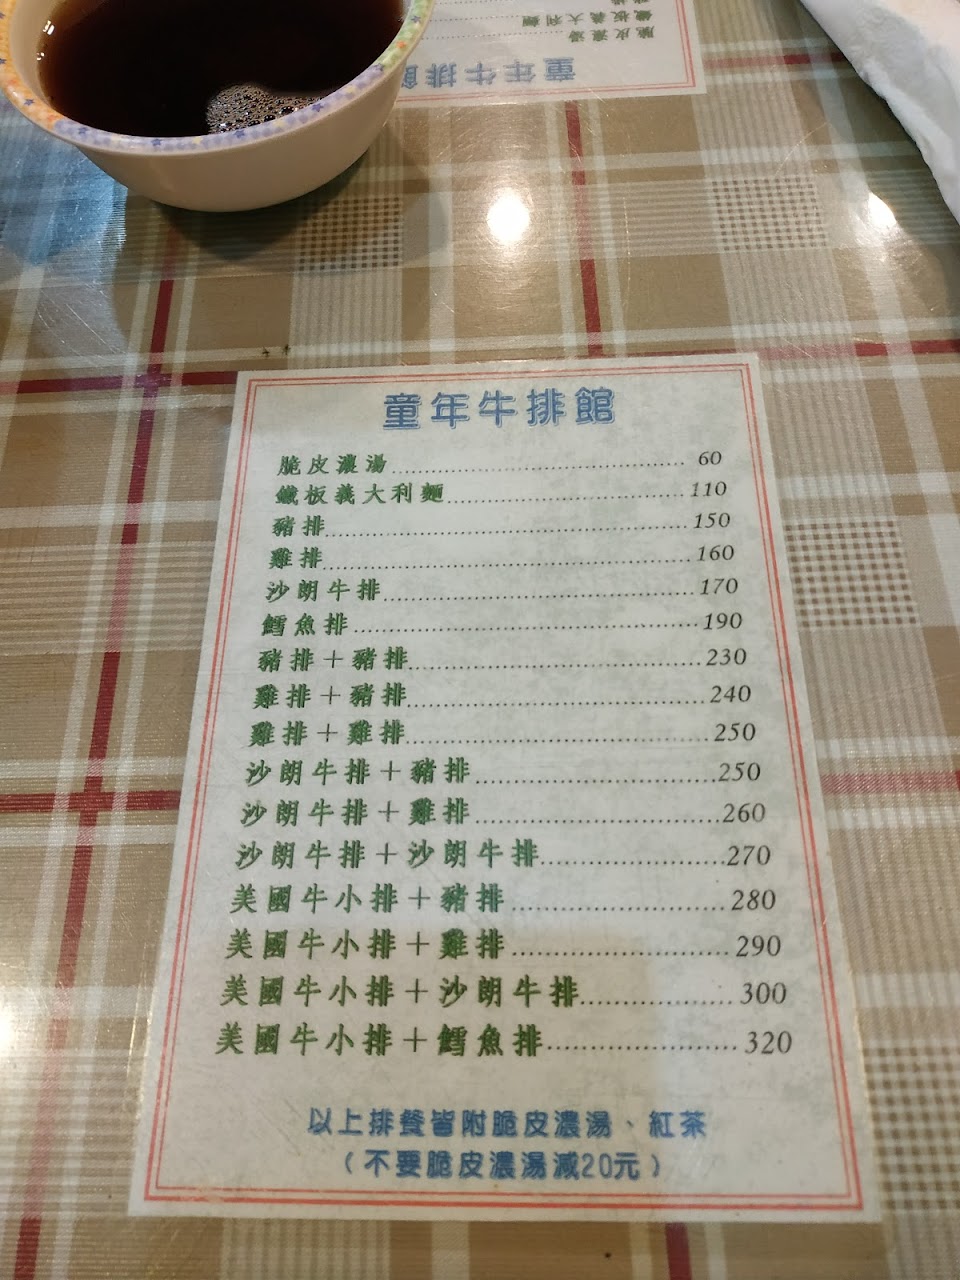 脆皮濃湯
鐵板義大利麵
童年牛排館
童年牛排館
脆皮濃湯 60
鐵板義大利麵 110
豬排 150
雞排 160
沙朗牛排 170
鱈魚排 190
豬排＋豬排 230
雞排＋豬排 240
雞排＋雞排 250
沙朗牛排＋豬排 250
沙朗牛排＋雞排 260
沙朗牛排＋沙朗牛排 270
美國牛小排＋豬排 280
美國牛小排＋雞排 290
美國牛小排＋沙朗牛排 300
美國牛小排＋鱈魚排 320
以上排餐皆附脆皮濃湯、紅茶
（不要脆皮濃湯減20元）